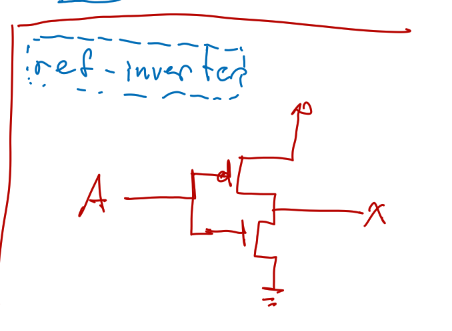 ref-inverter
A
X